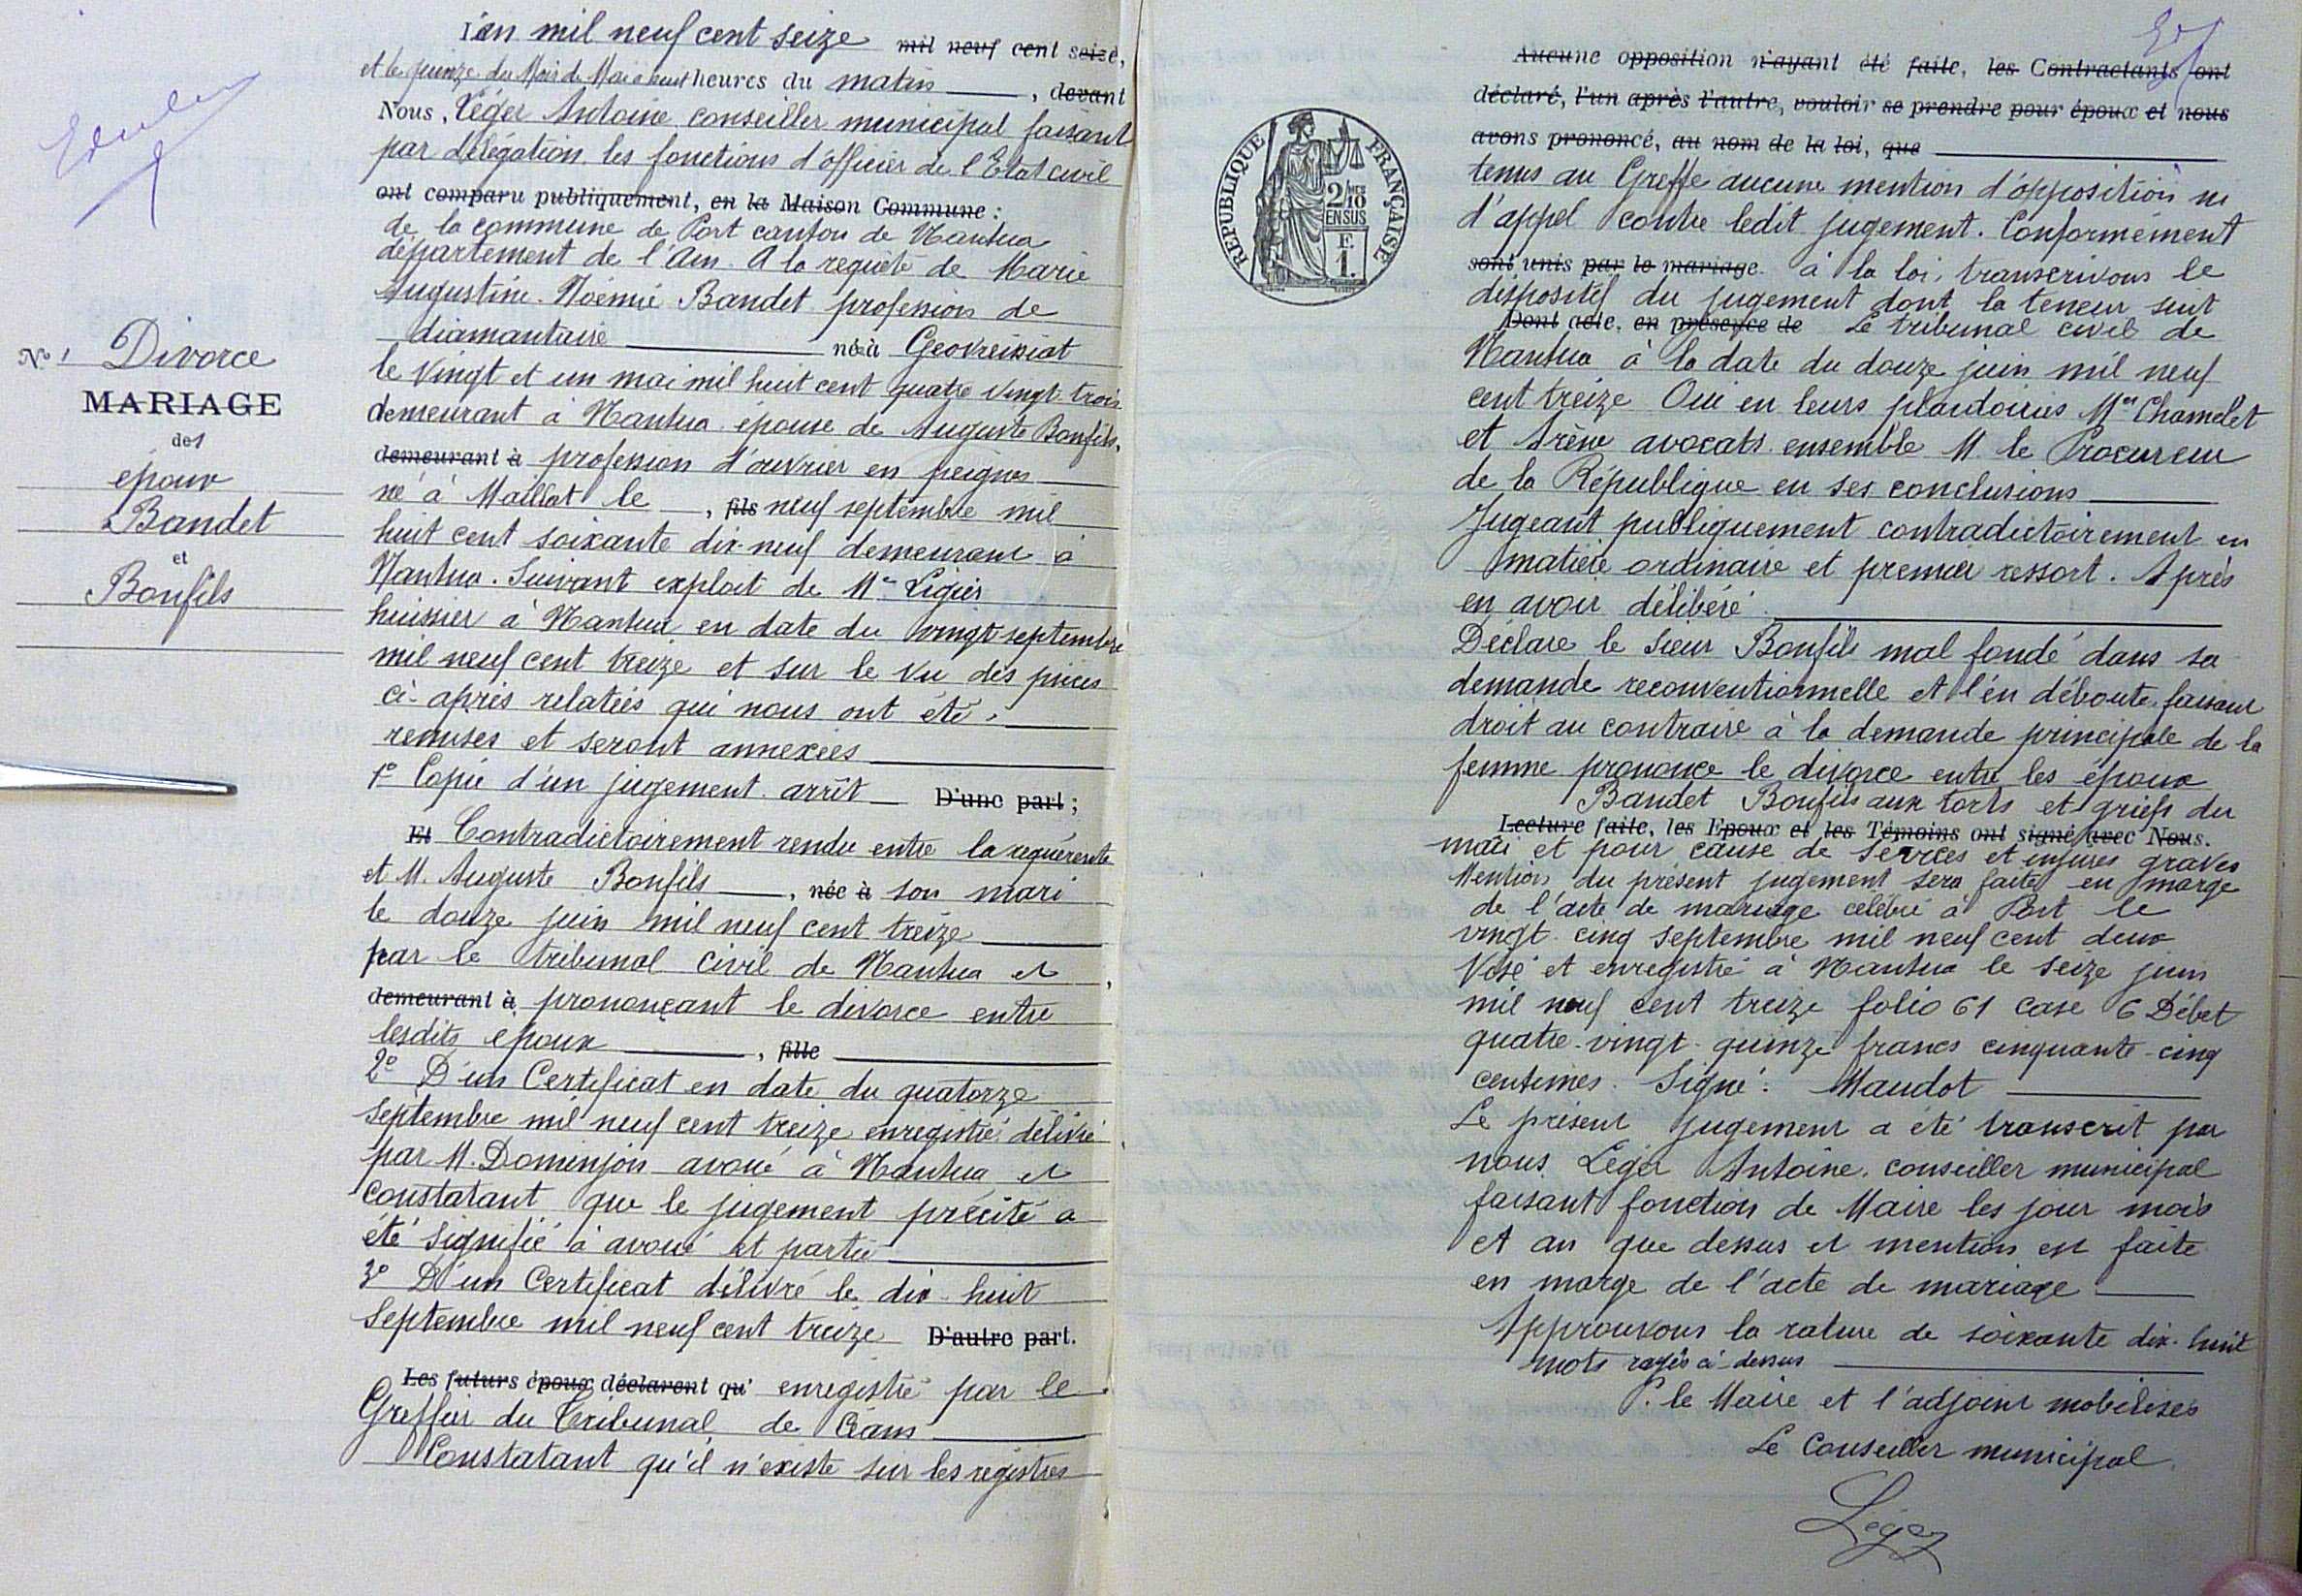 N° 1 Divorce
MARIAGE
des
époux
Bandet
et
Bonfils
L'an mil neuf cent seize mil neuf cent seize,
et le quinze du Mois de Mai à huit heures du matin, devant
Nous, Léger Antoine conseiller municipal faisant
par délégation les fonctions d'officier de l'Etat civil
ont comparu publiquement, en la Maison Commune :
de la commune de Port canton de Nantua
département de l'Ain. A la requête de Marie
Augustine Noémie Bandet profession de
diamantaire née à Geovreissiat
le vingt et un mai mil huit cent quatre vingt trois
demeurant à Nantua épouse de Auguste Bonfils,
demeurant à profession d'ouvrier en peignes
né à Maillat le, fils neuf septembre mil
huit cent soixante dix-neuf demeurant à
Nantua. Suivant exploit de Me Ligier
huissier à Nantua en date du vingt septembre
mil neuf cent treize et sur le vu des pièces
ci-après relatées qui nous ont été
remises et seront annexées
1° Copie d'un jugement arrêt D'une part ;
Et Contradictoirement rendu entre la requérente
et M. Auguste Bonfils, née à son mari
le douze juin mil neuf cent treize
par le tribunal civil de Nantua et
demeurant à prononçant le divorce entre
lesdits époux, fille
2° D'un Certificat en date du quatorze
septembre mil neuf cent treize enregistré délivré
par M. Dominjon avoué à Nantua et
constatant que le jugement précité a
été signifié à avoué et partie
3° D'un Certificat délivré le dix-huit
septembre mil neuf cent treize D'autre part.
Les futurs époux déclarent qu' enregistré par le
Greffier du Tribunal de
Constatant qu'il n'existe sur les registres
Aucune opposition n'ayant été faite, les Contractants ont
déclaré, l'un après l'autre, vouloir se prendre pour époux et nous
avons prononcé, au nom de la loi, que
REPUBLIQUE FRANÇAISE
2/10 EN SUS
F. 1.
tenus au Greffe aucune mention d'opposition ni
d'appel contre ledit jugement. Conformément
sont unis par le mariage. à la loi, transcrivons le
dispositif du jugement dont la teneur suit
Dont acte, en présence de Le tribunal civil de
Nantua à la date du douze juin mil neuf
cent treize Oui en leurs plaidoiries Mes Chamelet
et Arène avocats ensemble M. le Procureur
de la République en ses conclusions
Jugeant publiquement contradictoirement en
matière ordinaire et premier ressort. Après
en avoir délibéré
Déclare le sieur Bonfils mal fondé dans sa
demande reconventionnelle et l'en déboute faisant
droit au contraire à la demande principale de la
femme prononce le divorce entre les époux
Bandet Bonfils aux torts et griefs du
Lecture faite, les Epoux et les Témoins ont signé avec Nous.
mari et pour cause de sévices et injures graves
Mention du présent jugement sera faite en marge
de l'acte de mariage célébré à Port le
vingt-cinq septembre mil neuf cent deux
Visé et enregistré à Nantua le seize juin
mil neuf cent treize folio 61 case 6 Débet
quatre-vingt-quinze francs cinquante-cinq
centimes. Signé : Maudot
Le présent jugement a été transcrit par
nous Léger Antoine, conseiller municipal
faisant fonction de Maire les jour mois
et an que dessus et mention est faite
en marge de l'acte de mariage
Approuvons la rature de soixante dix-huit
mots rayés ci-dessus
P. le Maire et l'adjoint mobilisés
Le Conseiller municipal
Léger